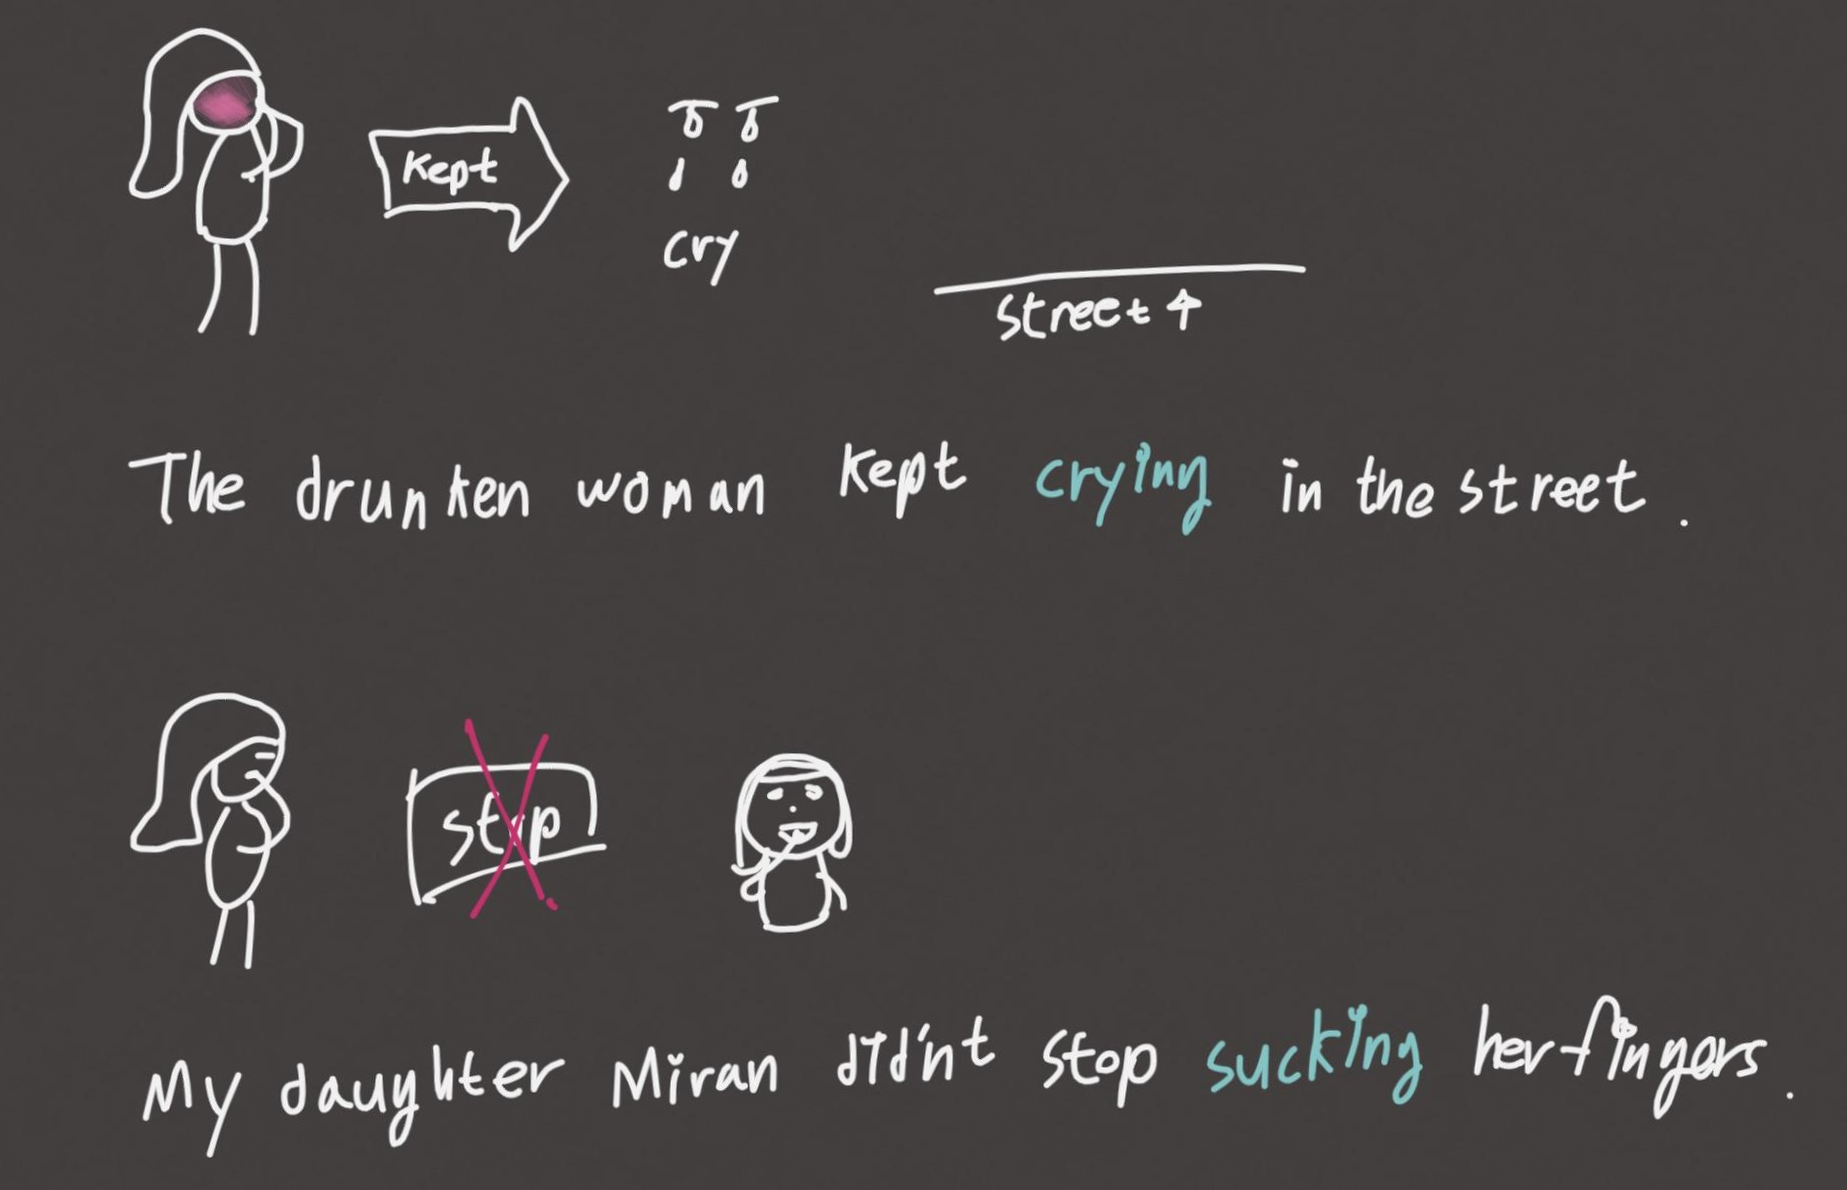 Kept
cry
street ↑
The drunken woman kept crying in the street.
stop
My daughter Miran did'nt stop sucking her fingers.